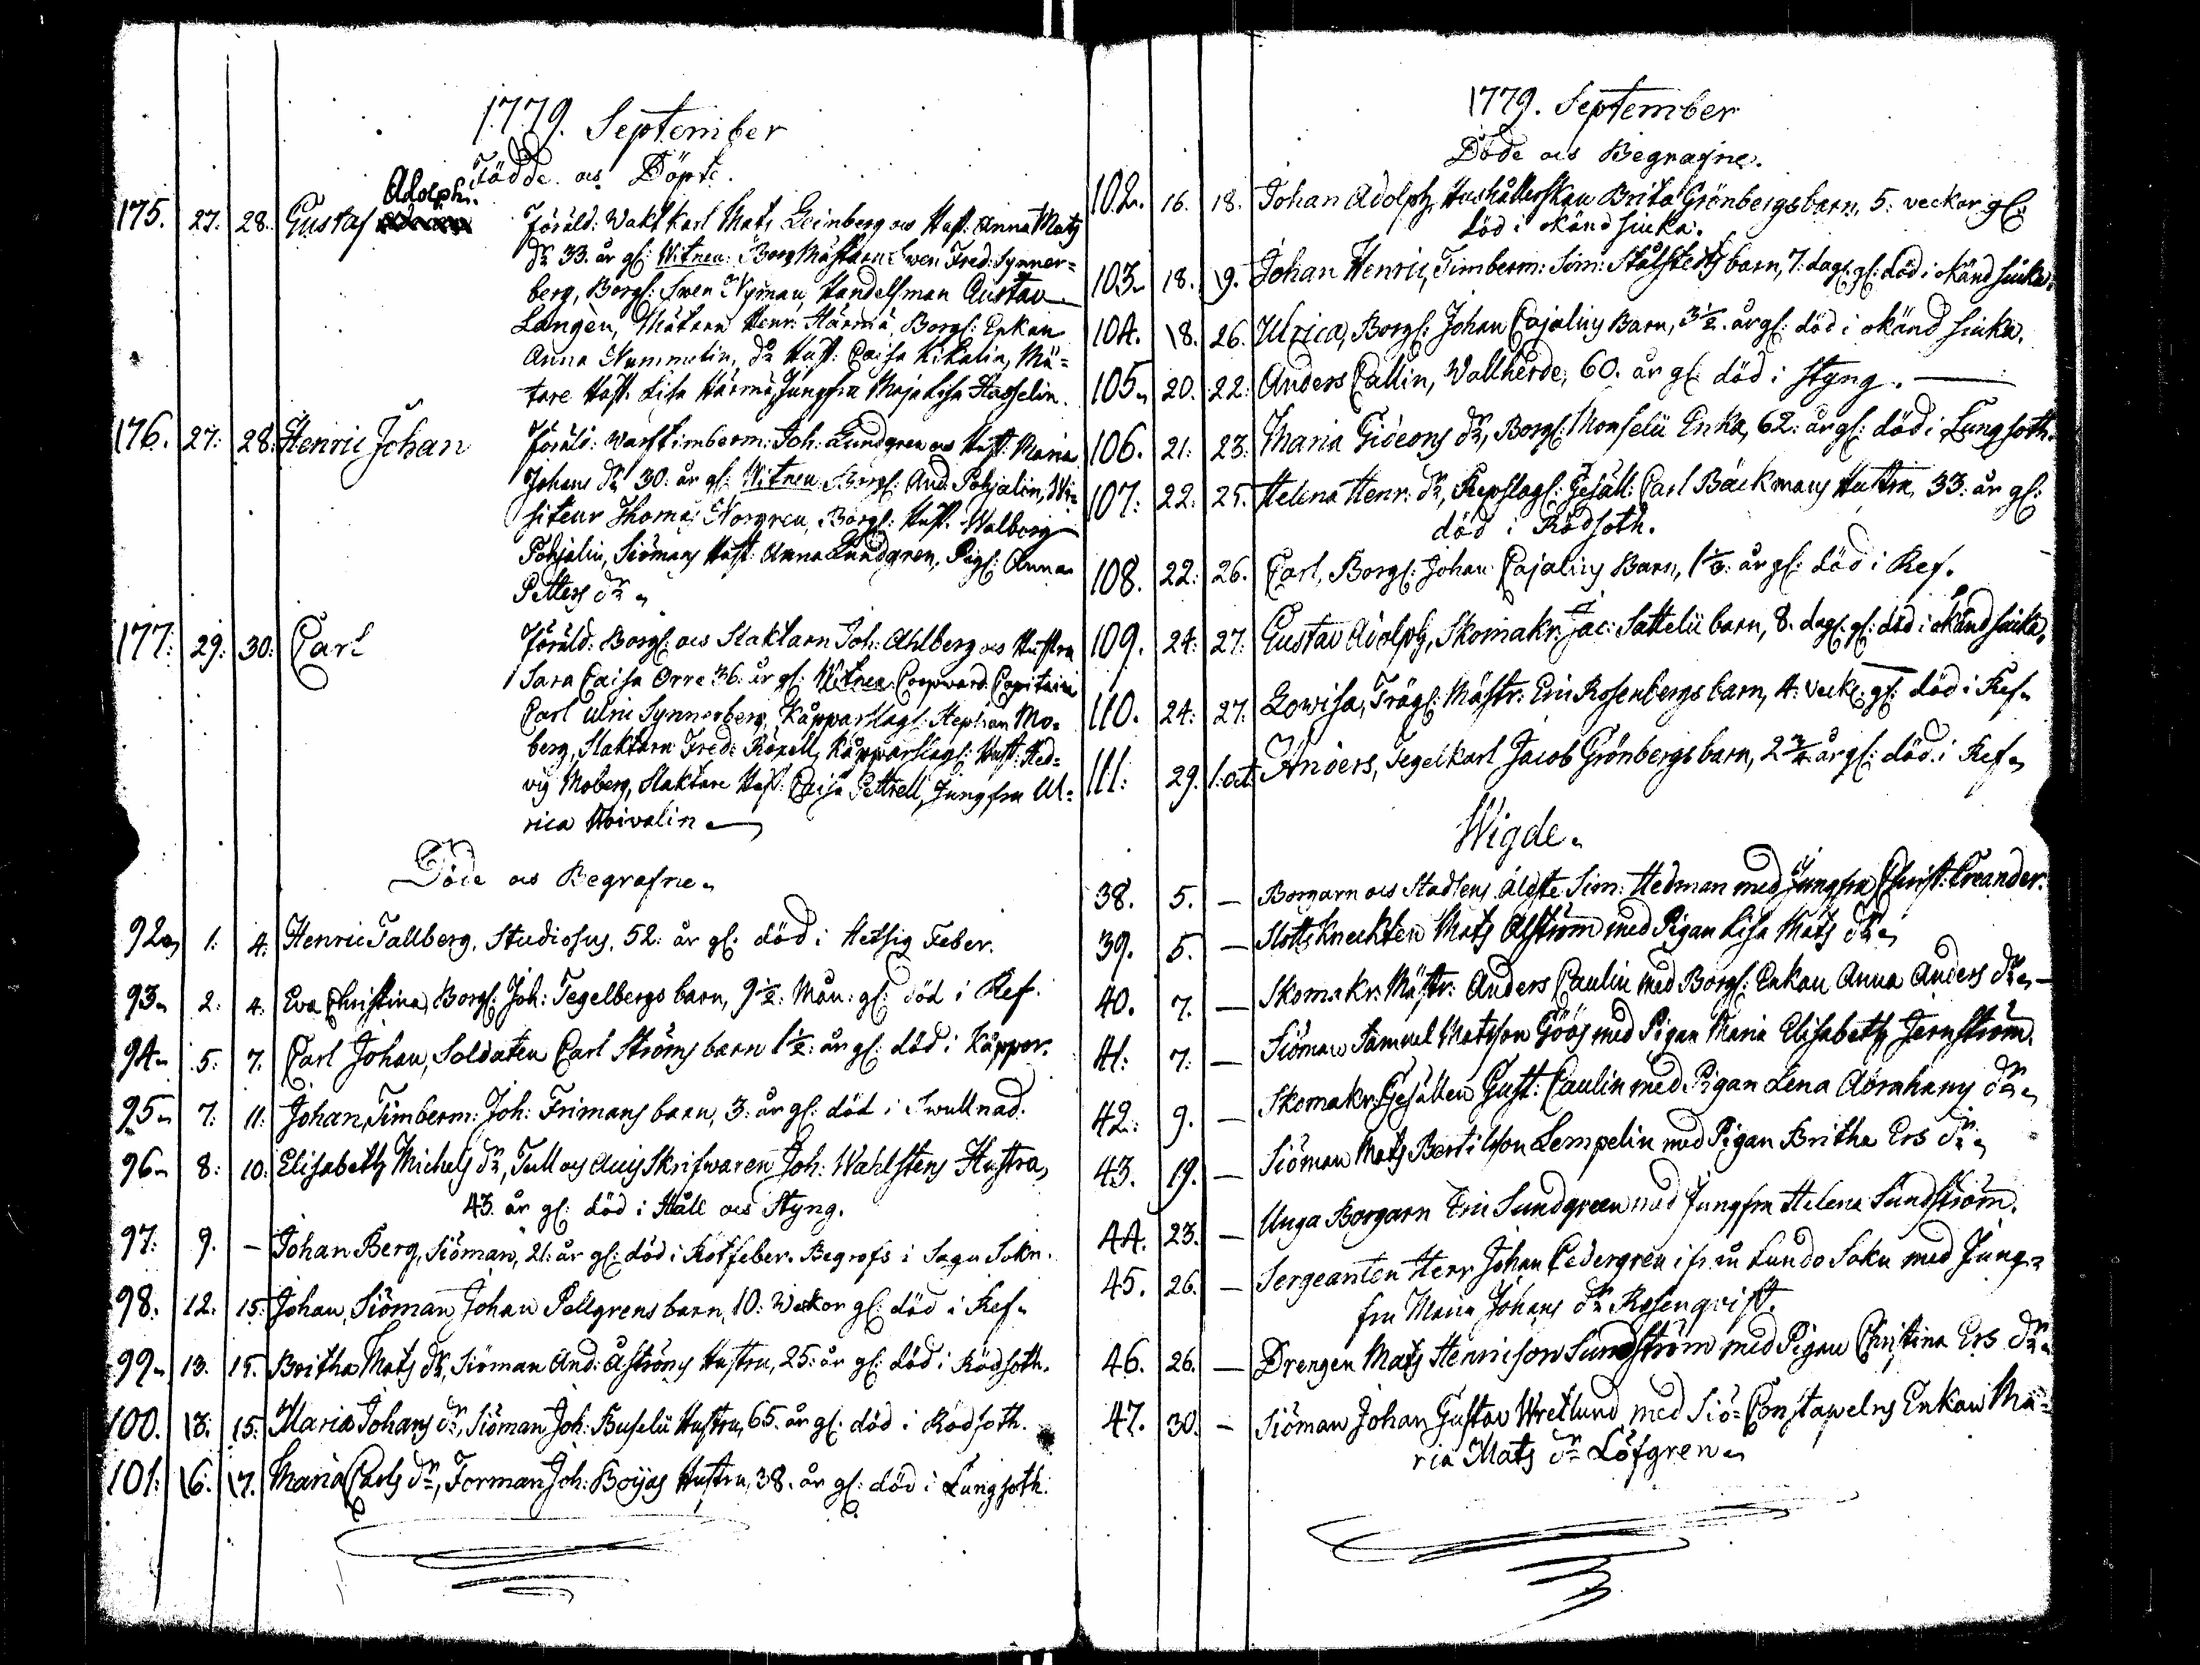 1779. September
Födde och Döpte.
Adolph.
175. 27. 28. Gustaf Föräld: Waktkarl Mats Leinberg och Hust: Anna Mats
dr 33. år gl: Witnen: Borg Mästaren Swen Fred: Synner=
berg, Borgl: Swen Nyman, Handelsman Gustav
Langèn, Mätaren Henr: Härmä, Borgl: Enkan
Anna Nummelin, do Hust: Caisa Kikalin, Mä=
tare Hust. Lisa Härmä, Jungfru Maja Lisa Hasselin.
176. 27: 28: Henric Johan Föräld: Warftimberm: Joh: Lundgren och Hust: Maria
Johans dr 30: år gl: Witnen Borgl: And: Pohjalin, Wi=
siteur Thomas Norgren, Borgl: Hust. Walborg
Pohjalin, Siömans Hust: Anna Lundgren, Pigl: Anna
Petters dr
177: 29: 30: Carl Föräld: Borgl: och Slaktaren Joh: Ahlberg och Hustru
Sara Caisa Orre 36: år gl: Witnen: Coopvard. Capitain
Carl Ulric Synnerberg, Kåpparslagl: Stephan Mo=
berg, Slaktaren Fred: Rönell, Kåpparslagl: Hust: Hed=
vig Moberg, Slaktare Hust: Caisa Pettrell, Jungfru Ul=
rica Hoivalin
Döde och Begrafne
92 1: 4: Henric Tallberg, Studiosus, 52: år gl: död i Hetsig Feber.
93 2: 4: Eva Christina, Borgl: Joh: Tegelbergs barn, 9 1/2: Mån: gl: död i Ref.
94 5: 7. Carl Johan, Soldaten Carl Ströms barn 1 1/2: år gl: död i Kåppor.
95 7: 11: Johan, Timberm: Joh: Frimans barn, 3: år gl: död i Swullnad.
96 8: 10: Elisabeth Michels dr, Tull och Accis Skrifwaren Joh: Wahlstens Hustru,
43. år gl: död i Håll och Styng.
97: 9. – Johan Berg, Siöman, 21: år gl: död i Rötfeber. Begrofs i Sagu Sokn.
98. 12. 15: Johan, Siöman Johan Pellgrens barn, 10: Weckor gl: död i Ref
99 13. 15. Britha Mats dr, Siöman And: Åströms Hustru, 25: år gl: död i Rödsoth.
100. 13: 15: Maria Johans dr, Siöman Joh: Buselii Hustru, 65. år gl: död i Rödsoth.
101: 16. 17. Maria Carls dr, Forman Joh: Böijas Hustru, 38. år gl: död i Lungsoth.
1779. September
Döde och Begrafne.
102. 16. 18. Johan Adolph, Hushållerskan Brita Grönbergs barn, 5: veckor gl:
död i okänd siuka.
103 18. 19. Johan Henric, Timberm: Sim: Stålstedts barn, 7: dag: gl: död i okänd siuka.
104. 18. 26. Ulrica, Borgl: Johan Cajalins Barn, 3 1/2. år gl: död i okänd siuka.
105 20. 22: Anders Callin, Wallherde, 60. år gl: död i styng.
106. 21: 23: Maria Gideons dr, Borgl: Monselii Enka, 62: år gl: död i Lungsoth.
107: 22: 25. Helena Henr: dr, Repslagl: Gesäll: Carl Bäckmans Hustru, 33: år gl:
död i Rödsoth.
108. 22: 26. Carl, Borgl: Johan Cajalins Barn, 1 1/3: år gl: död i Ref.
109. 24: 27: Gustav Adolph, Skomakr: Jac: Sattelii barn, 8. dag: gl: död i okänd siuka.
110. 24: 27: Lowisa, Trägl: Mästr: Eric Rosenbergs barn, 4: veck: gl: död i Ref
111: 29. 1: oct: Anders, Tegelkarl Jacob Grönbergs barn, 2 3/4 år gl: död i Ref
Wigde
38. 5. – Borgarn och Stadsens äldste Sim: Hedman med Jungfru Christ: Creander.
39. 5. – Slotts Knechten Mats Alström med Pigan Lisa Mats dr
40. 7. – Skomakr: Mästr: Anders Caulin med Borgl: Enkan Anna Anders dr –
41: 7: – Siöman Samuel Matsson Göös med Pigan Maria Elisabeth Jernström.
42: 9. – Skomakr: Gesällen Gust: Caulin med Pigan Lena Abrahams dr
43. 19. – Siöman Mats Bertilsson Lempelin med Pigan Britha Ers dr
44. 23. – Unga Borgarn Eric Sundgreen med Jungfru Helena Sundström.
45. 26. – Sergeanten Herr Johan Cedergren ifrån Lundo Sokn med Jung=
fru Maria Johans dr Rosenqvist.
46. 26. – Drengen Mats Henricson Sundström med Pigan Christina Ers dr
47. 30. – Siöman Johan Gustav Wretlund med Siö-Constapelns Enkan Ma=
ria Mats dr Löfgren